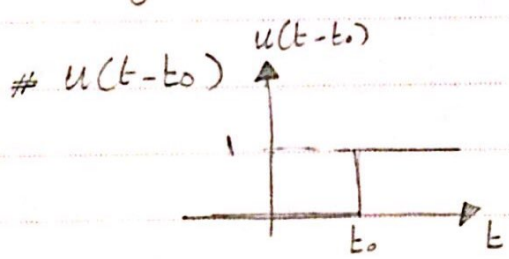 u(t-t₀)
# u(t-t₀)
1
t₀
t